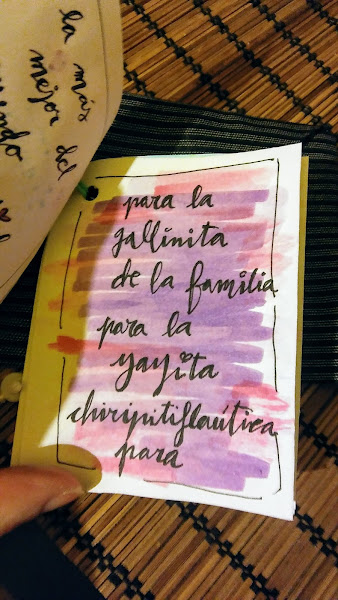 la más
mejor del
para la
gallinita
de la familia
para la
yayita
chiripitiflaútica
para